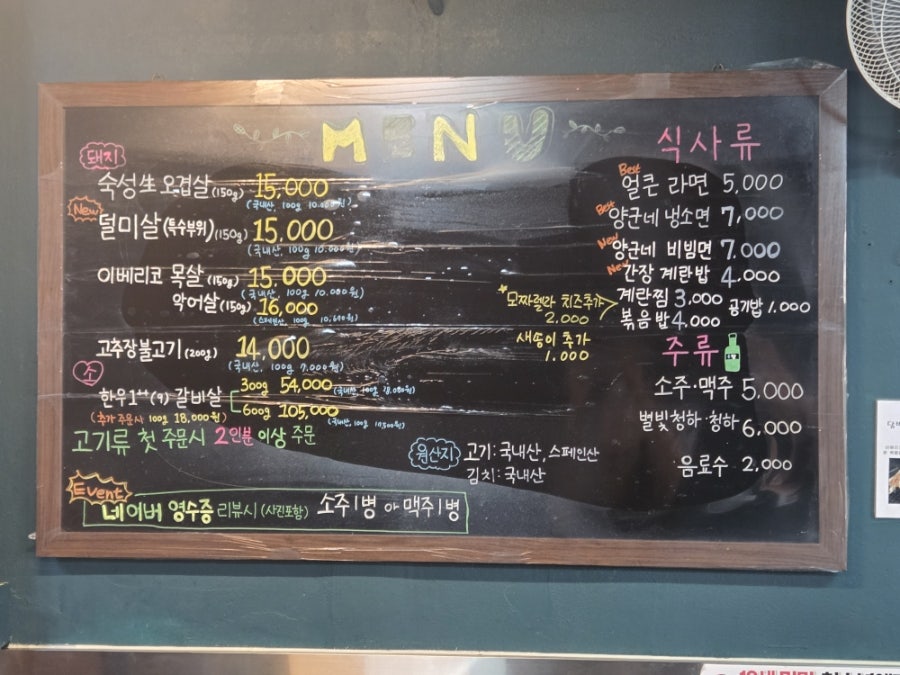 MENU
돼지
숙성生 오겹살 (150g) 15,000
(국내산, 100g 10.000원)
New
덜미살 (특수부위) (150g) 15,000
(국내산, 100g 10.000원)
이베리코 목살 (150g) 15,000
(국내산, 100g 10.000원)
악어살 (150g) 16,000
(스페인산, 100g 10,640원)
고추장불고기 (200g) 14,000
(국내산, 100g 7.000원)
소
한우1++(9) 갈비살 300g 54,000
(국내산, 100g 18,000원)
600g 105,000
(국내산, 100g 17,500원)
(추가 주문시 100g 18,000원)
고기류 첫 주문시 2인분 이상 주문
Event
네이버 영수증 리뷰시 (사진포함) 소주1병 or 맥주1병
원산지 고기: 국내산, 스페인산
김치: 국내산
식사류
Best
얼큰 라면 5,000
Best
양군네 냉소면 7,000
New
양군네 비빔면 7.000
New
간장 계란밥 4.000
계란찜 3,000
공기밥 1.000
볶음밥 4,000
모짜렐라 치즈추가
2.000
새송이 추가
1.000
주류
소주·맥주 5,000
별빛청하·청하 6,000
음료수 2,000